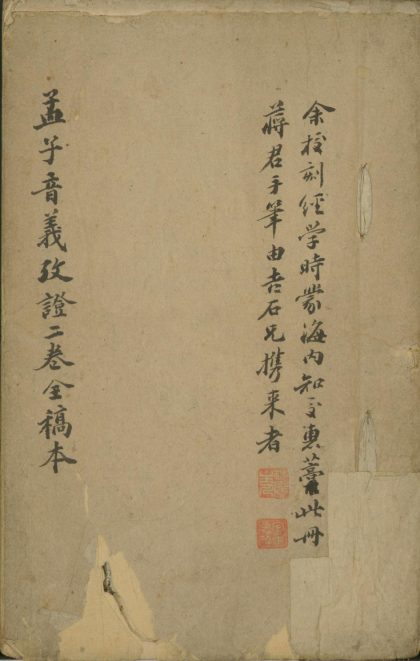 余校刻經学時蒙海内知交惠藁此冊
蔣君手筆由吉石兄携来者
孟子音義攷證二卷全稿本